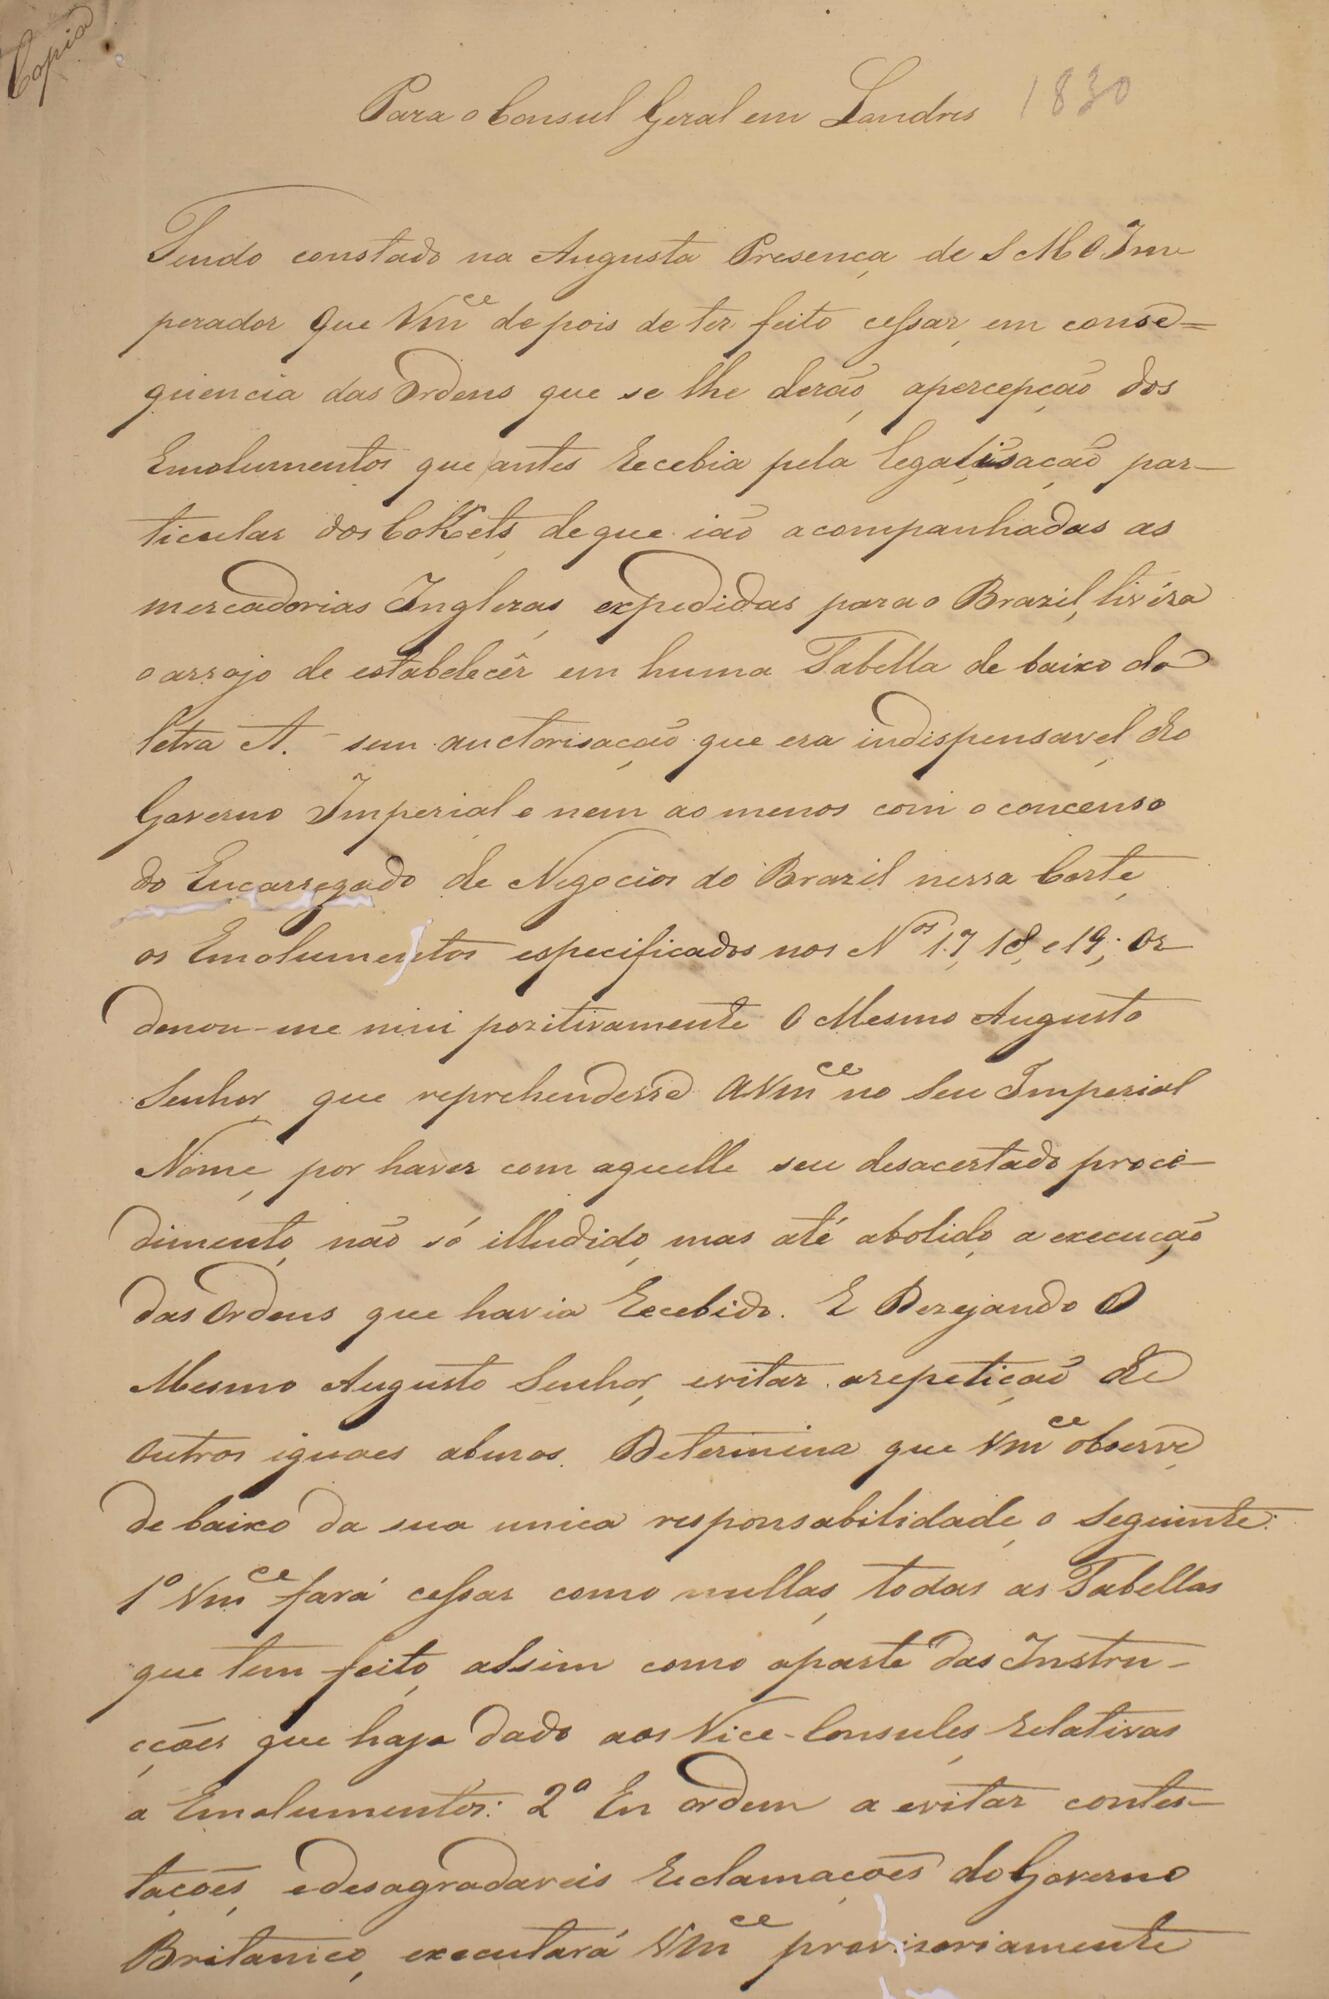 Copia
Para o Consul Geral em Londres 1830
Tendo constado na Augusta Presença de S M O Im
perador que Vmce depois de ter feito cessar, em conse=
quencia das Ordens que se lhe derão, apercepção dos
Emolumentos que antes Recebia pela legalisação par-
ticular dos CoKets, de que ião acompanhadas as
mercadorias Inglezas, expedidas para o Brazil, tivéra
o arrojo de estabelecêr em huma Tabella de baixo da
letra A. - sem auctorisação que era indispensavel do
Governo Imperial e nem ao menos com o concenso
do Encarregado de Negocios do Brazil nessa Corte,
os Emolumentos especificados nos Nos 17, 18, e 19; Or
denou-me mui pozitivamente O Mesmo Augusto
Senhor, que reprehendesse a Vmce no Seu Imperial
Nome, por haver com aquelle seu desacertado proce-
dimento, não só illudido, mas até abolido, a execução
das Ordens que havia Recebido. E Dezejando O
Mesmo Augusto Senhor, evitar arepetição de
outros iguaes abusos. Determina que Vmce observe,
de baixo da sua unica responsabilidade, o seguinte:
1º Vmce fará cessar como nullas, todas as Tabellas
que tem feito, assim como aparte das Instru-
cções que haja dado aos Vice-Consules, Relativas
a Emolumentos: 2º En ordem a evitar contes-
tações, edesagradaveis Reclamações do Governo
Britanico, executará Vmce provizoriamente